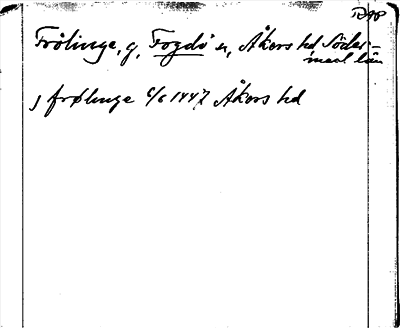 Frölinge, g, Fogdö sn, Åkers hd Söder-
manl län
j frølinge 6/6 1447 Åkers hd